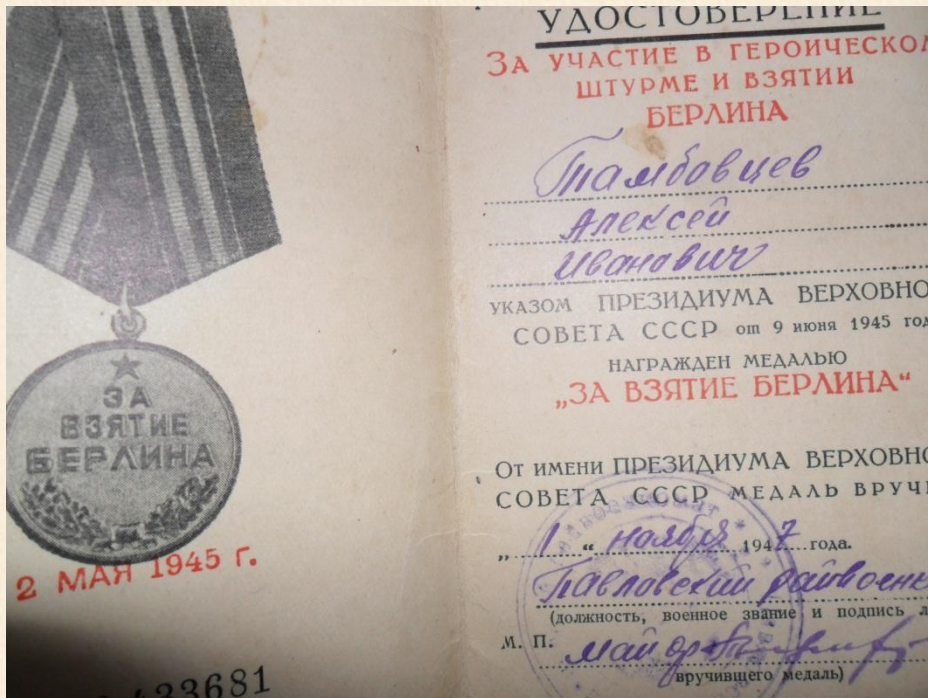 ЗА
ВЗЯТИЕ
БЕРЛИНА
2 МАЯ 1945 Г.
433681
УДОСТОВЕРЕНИЕ
ЗА УЧАСТИЕ В ГЕРОИЧЕСКОМ
ШТУРМЕ И ВЗЯТИИ
БЕРЛИНА
Тамбовцев
Алексей
Иванович
УКАЗОМ ПРЕЗИДИУМА ВЕРХОВНО
СОВЕТА СССР от 9 июня 1945 год
НАГРАЖДЕН МЕДАЛЬЮ
„ЗА ВЗЯТИЕ БЕРЛИНА“
ОТ ИМЕНИ ПРЕЗИДИУМА ВЕРХОВНО
СОВЕТА СССР МЕДАЛЬ ВРУЧЕ
„1“ ноября 1947 года.
Павловский райвоенк
(должность, военное звание и подпись л
М. П. майор
вручившего медаль)